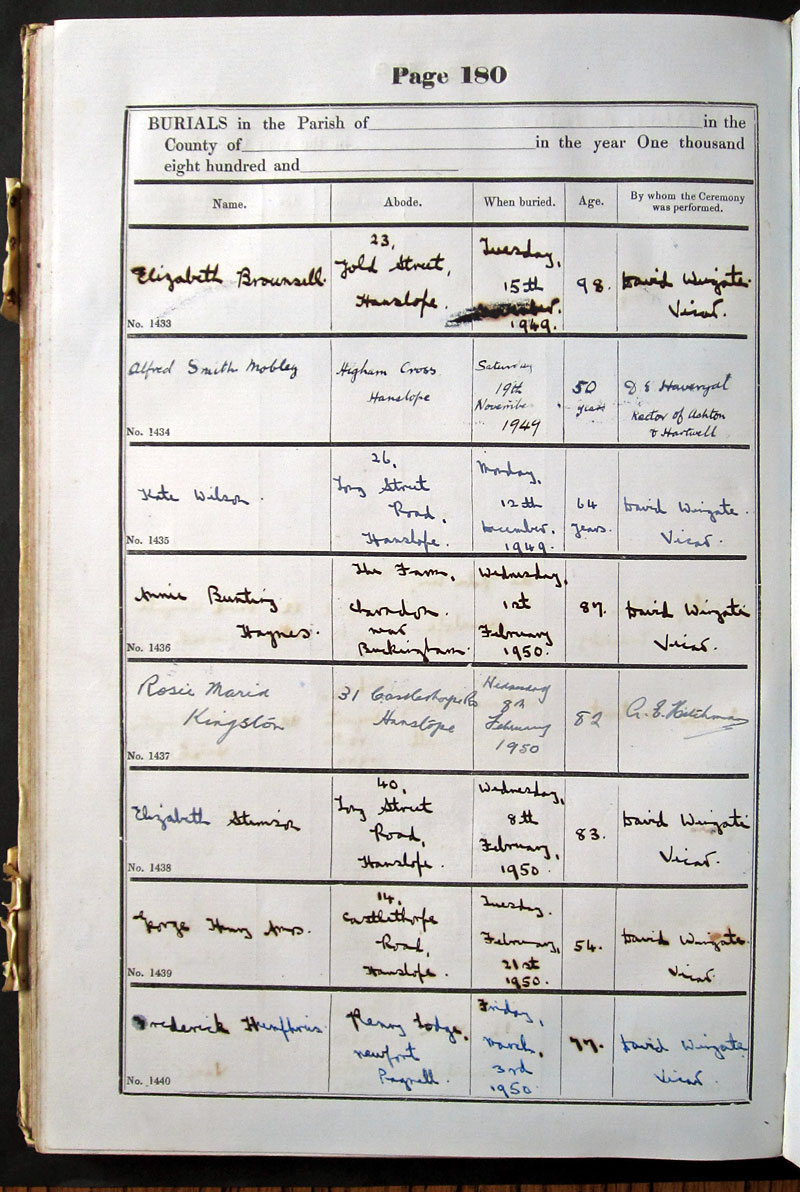 Page 180
BURIALS in the Parish of in the
County of in the year One thousand
eight hundred and
Name. Abode. When buried. Age. By whom the Ceremony was performed.
23,
Elizabeth Brownsell. Gold Street, Hanslope. Tuesday, 15th November. 1949. 98. David Wingate. Vicar.
No. 1433
Alfred Smith Mobley Higham Cross Hanslope Saturday 19th November 1949 50 years Rector of Ashton & Hartwell
No. 1434
26,
Kate Wilson. Long Street Road, Hanslope. Monday, 12th December, 1949. 64 years. David Wingate. Vicar.
No. 1435
Annie Bunting Haynes. The Farm, near Buckingham. Wednesday, 1st February 1950. 87. David Wingate Vicar.
No. 1436
Rosie Maria Kingston 31 Castlethorpe Rd Hanslope Wednesday 8th February 1950 82
No. 1437
40,
Elizabeth Stimson Long Street Road, Hanslope. Wednesday, 8th February, 1950. 83. David Wingate Vicar.
No. 1438
14,
George Henry Amos. Castlethorpe Road, Hanslope. Tuesday. February, 21st 1950. 54. David Wingate. Vicar.
No. 1439
Frederick Humphries. Renny Lodge, Newport Pagnell. Friday, March, 3rd 1950. 77. David Wingate Vicar.
No. 1440